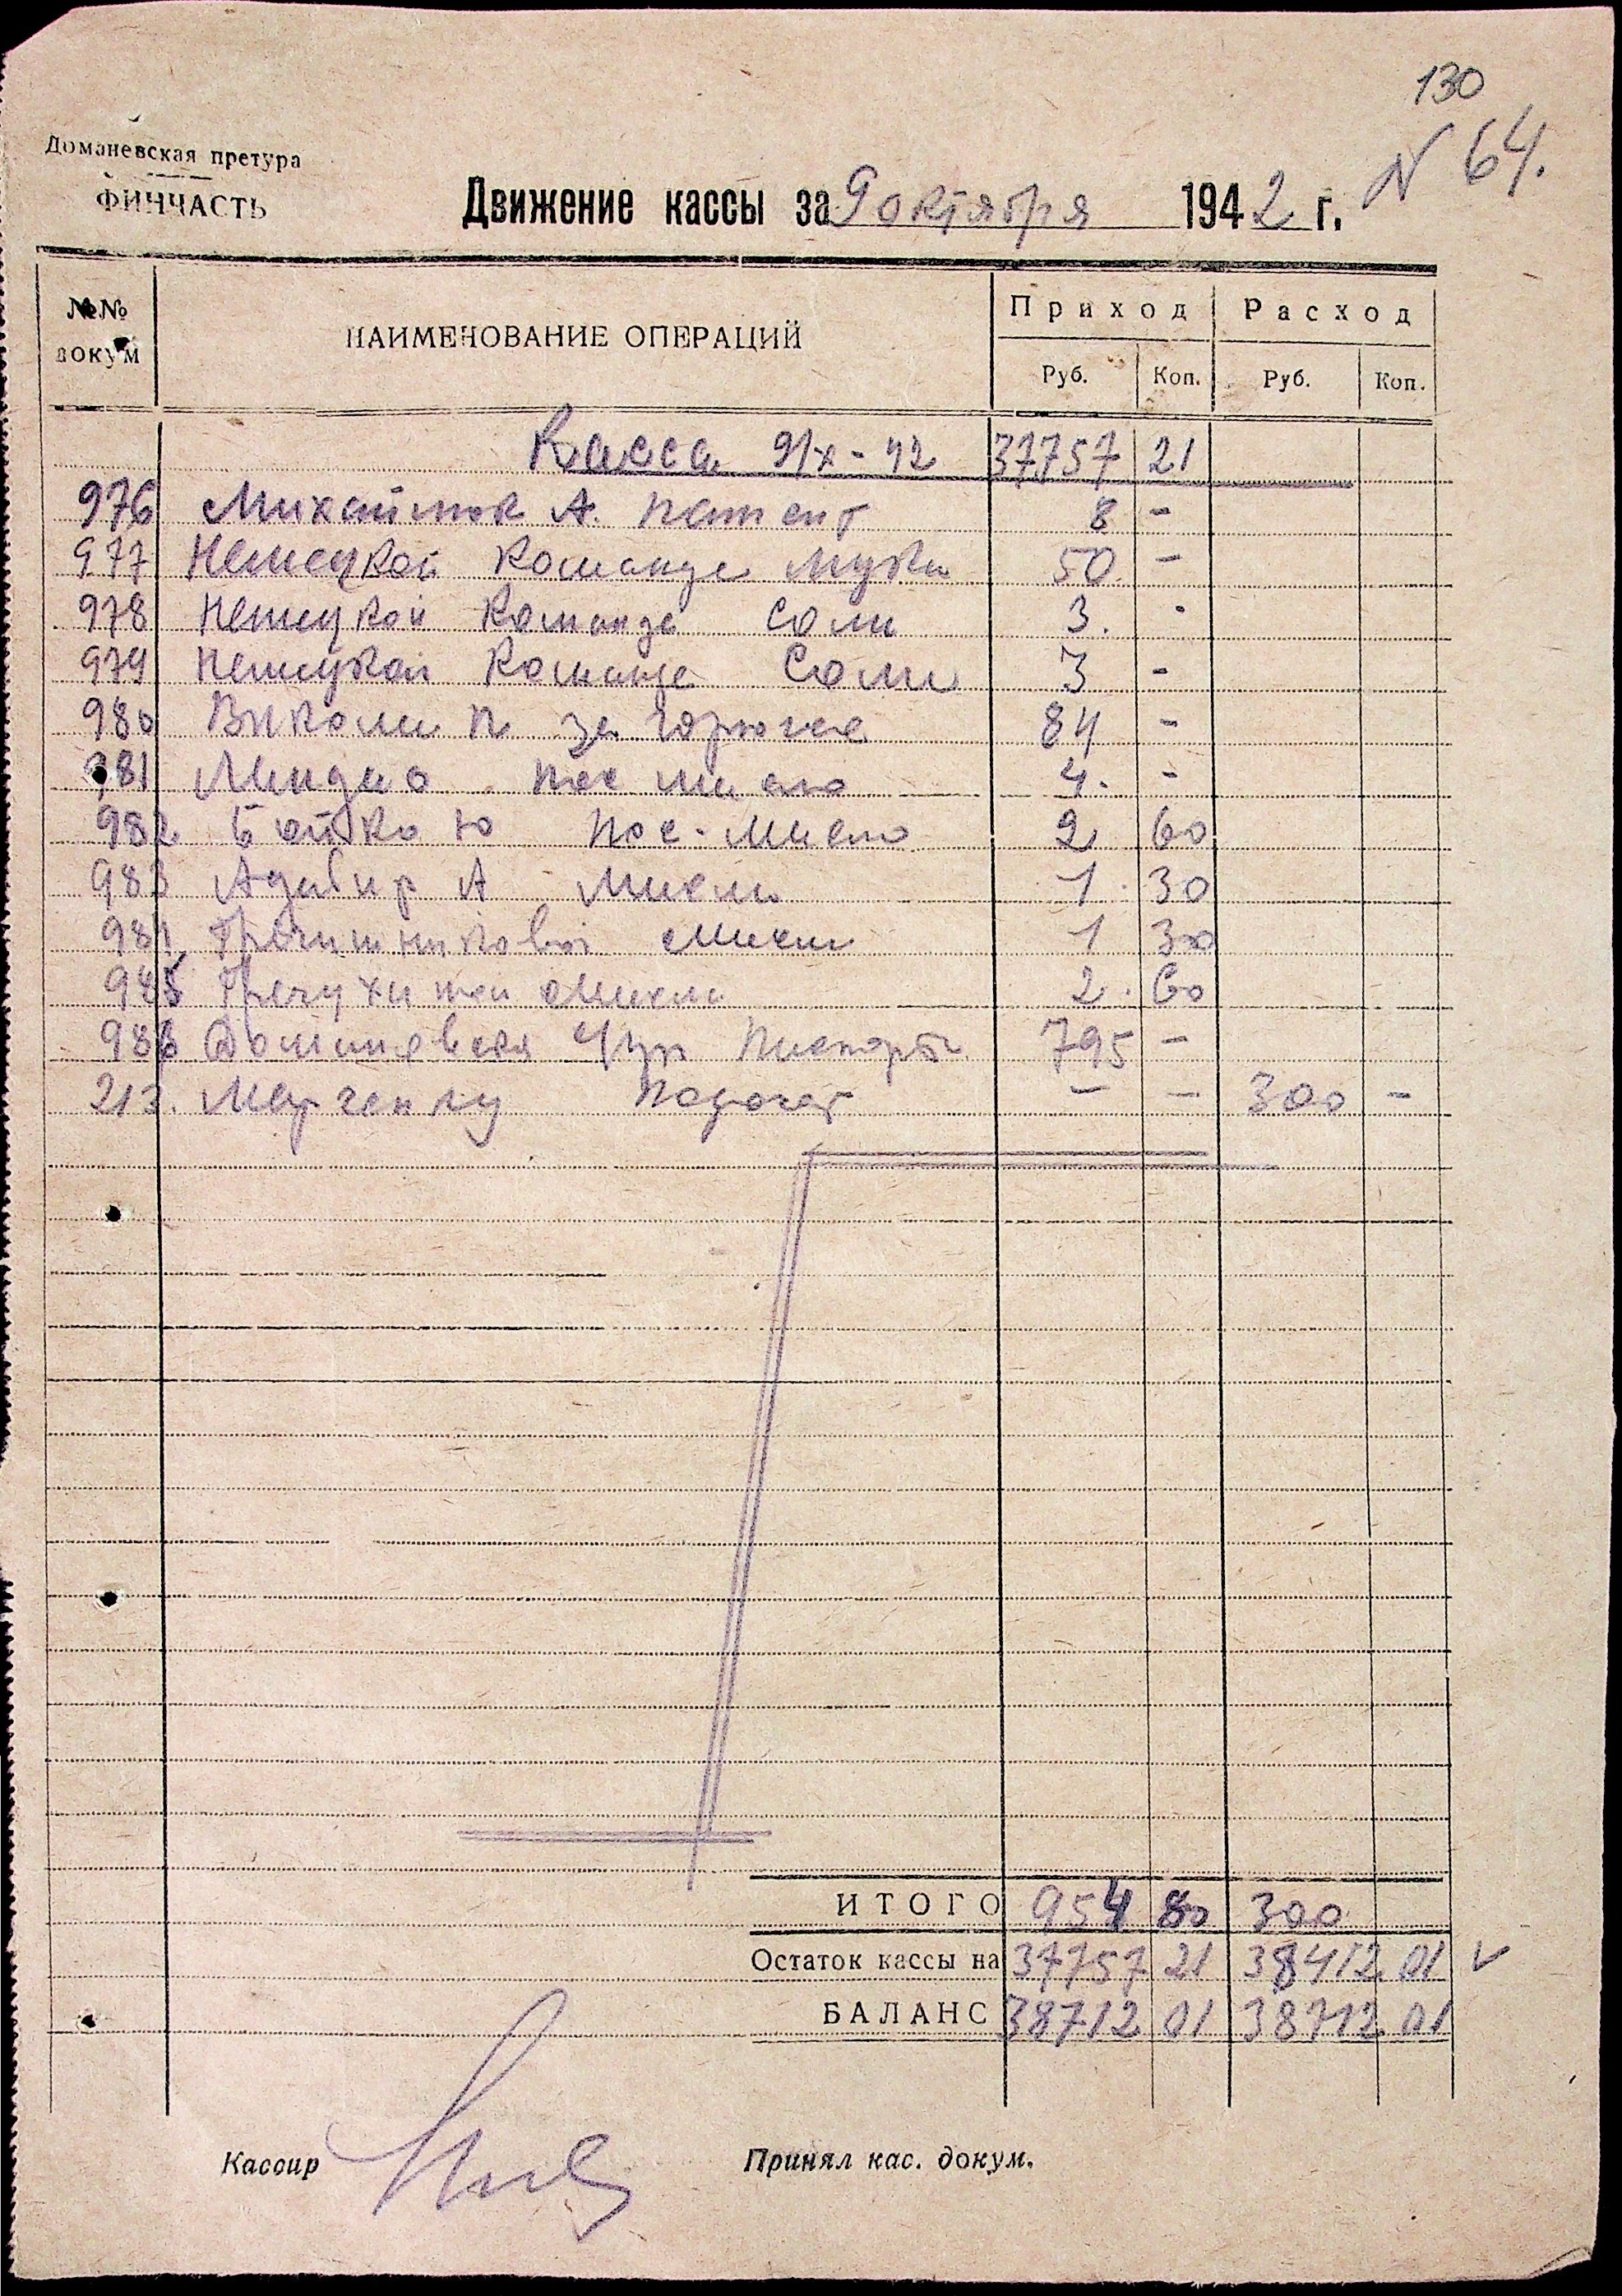 130
N 64.
Доманевская претура
ФИНЧАСТЬ
Движение кассы за 9 октября 1942 г.
№№ докум
НАИМЕНОВАНИЕ ОПЕРАЦИЙ
Приход Расход
Руб. Коп. Руб. Коп.
Касса 9/X-42 37757 21
976 Михайлюк А. патент 8 -
977 Немецкой Команде муки 50 -
978 Немецкой Команде Соли 3. -
979 Немецкой Команде Соли 3 -
980 за горючее 84 -
981 4. -
982 Бойко Ю пос. Мисло 2 60
983 А Мисло 1. 30
984 Мисло 1 30
985 Мисло 2. 60
986 Доманевская 795 -
213. - - 300 -
ИТОГО 954 80 300
Остаток кассы на 37757 21 38412 01 ✓
БАЛАНС 38712 01 38712 01
Кассир Принял кас. докум.